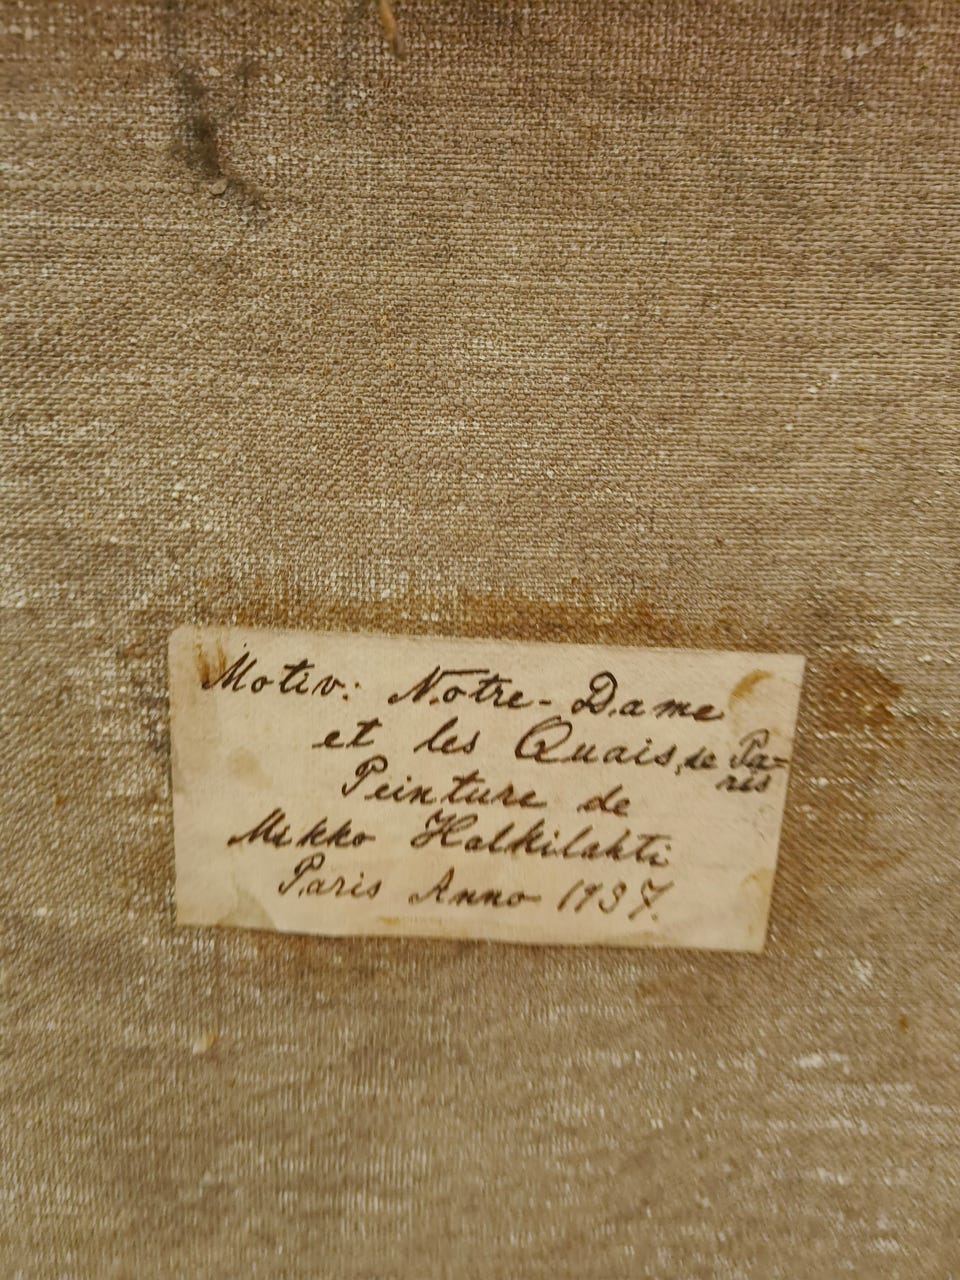 Motiv: Notre-Dame
et les Quais, de Pa=
ris
Peinture de
Mikko Halkilahti
Paris Anno 1937.